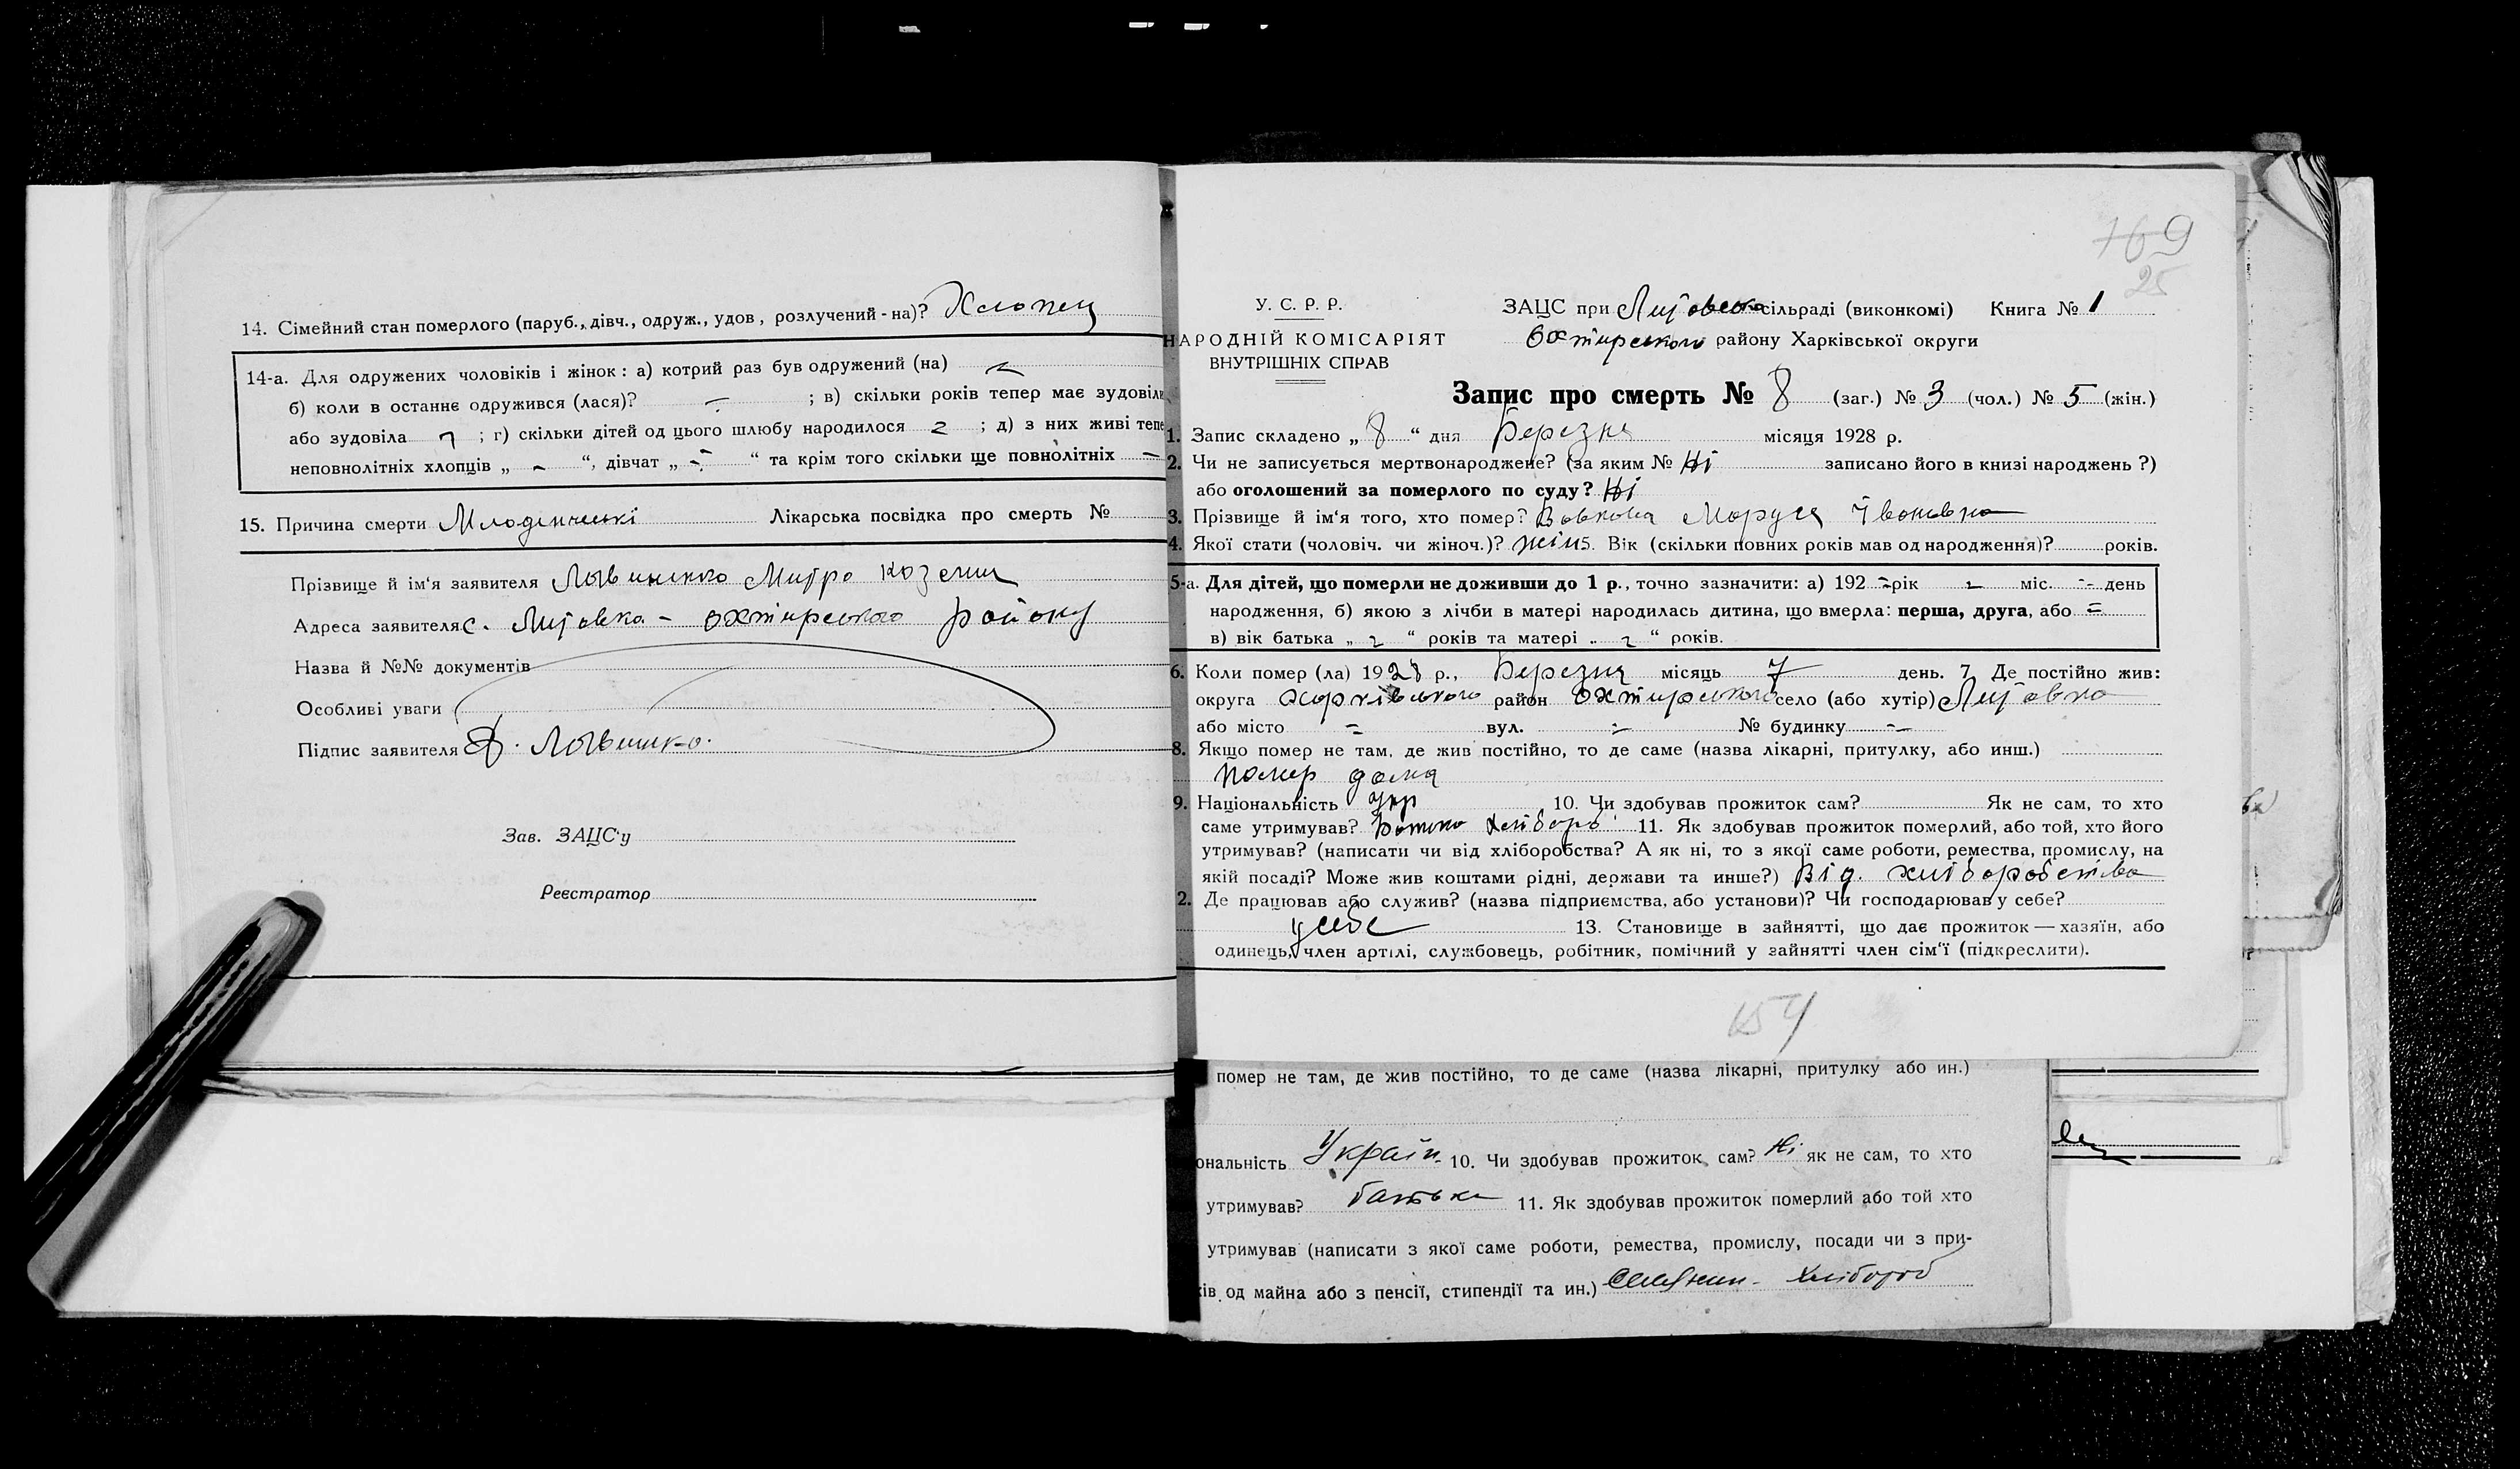 14. Сімейний стан померлого (паруб., дівч., одруж., удов, розлучений-на)? Хлопец
14-а. Для одружених чоловіків і жінок: а) котрий раз був одружений (на)
б) коли в останнє одружився (лася)? ; в) скільки років тепер має зудовіли
або зудовіла ; г) скільки дітей од цього шлюбу народилося ; д) з них живі тепе
неповнолітніх хлопців „ - “, дівчат „ - “ та крім того скільки ще повнолітніх -
15. Причина смерти Лікарська посвідка про смерть №
Прізвище й ім'я заявителя Митро
Адреса заявителя с. Литовка - охтирського району
Назва й №№ документів
Особливі уваги
Підпис заявителя
Зав. ЗАЦС'у
Реєстратор
169
25
У. С. Р. Р.
НАРОДНІЙ КОМІСАРІЯТ
ВНУТРІШНІХ СПРАВ
ЗАЦС при сільраді (виконкомі) Книга № 1
Охтирського району Харківської округи
Запис про смерть № 8 (заг.) № 3 (чол.) № 5 (жін.)
1. Запис складено „ 8 “ дня Березня місяця 1928 р.
2. Чи не записується мертвонароджене? (за яким № Ні записано його в книзі народжень?)
або оголошений за померлого по суду? Ні
3. Прізвище й ім'я того, хто помер? Маруся Івановна
4. Якої стати (чоловіч. чи жіноч.)? жін 5. Вік (скільки повних років мав од народження)? років.
5-а. Для дітей, що померли не доживши до 1 р., точно зазначити: а) 192 рік міс. день
народження, б) якою з лічби в матері народилась дитина, що вмерла: перша, друга, або
в) вік батька „ “ років та матері „ “ років.
6. Коли помер (ла) 1928 р., Березня місяць 7 день. 7. Де постійно жив:
округа Харківського район Охтирського село (або хутір) Литовка
або місто вул. № будинку
8. Якщо помер не там, де жив постійно, то де саме (назва лікарні, притулку, або инш.)
помер дома
9. Національність Укр 10. Чи здобував прожиток сам? Як не сам, то хто
саме утримував? Батько хлібороб 11. Як здобував прожиток померлий, або той, хто його
утримував? (написати чи від хліборобства? А як ні, то з якої саме роботи, ремества, промислу, на
якій посаді? Може жив коштами рідні, держави та инше?) Від хліборобства
2. Де працював або служив? (назва підприємства, або установи)? Чи господарював у себе?
у себе 13. Становище в зайнятті, що дає прожиток — хазяїн, або
одинець, член артілі, службовець, робітник, помічний у зайнятті член сім'ї (підкреслити).
154
помер не там, де жив постійно, то де саме (назва лікарні, притулку або ин.)
ональність Україн. 10. Чи здобував прожиток сам? Ні як не сам, то хто
утримував? батько 11. Як здобував прожиток померлий або той хто
утримував (написати з якої саме роботи, ремества, промислу, посади чи з при-
ів од майна або з пенсії, стипендії та ин.) Селянин - хлібороб